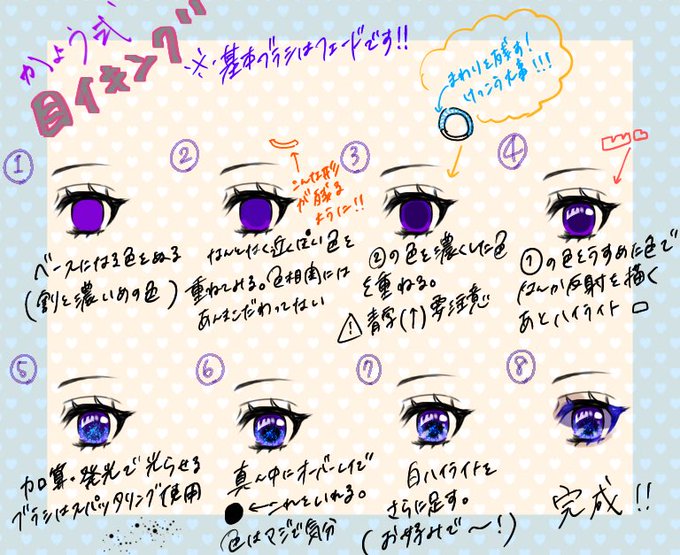 かょう式
目メイキング
※基本ブラシはフェードです!!
まわりを残す!
けっこう大事!!!
①
ベースになる色をぬる
(割と濃いめの色)
②
こんな形
が残る
ように!!
なんとなく近くぽい色を
重ねてみる。色相環には
あんまこだわってない
③
②の色を濃くした色
を重ねる。
⚠青字(↑)要注意
④
①の色をうすめた色で
反射を描く
あとハイライト
⑤
加算・発光で光らせる
ブラシはスパッタリング使用
⑥
真ん中にオーバーレイで
●←これをいれる。
色はマジで気分
⑦
白ハイライトを
さらに足す。
(お好みで〜!)
⑧
完成!!